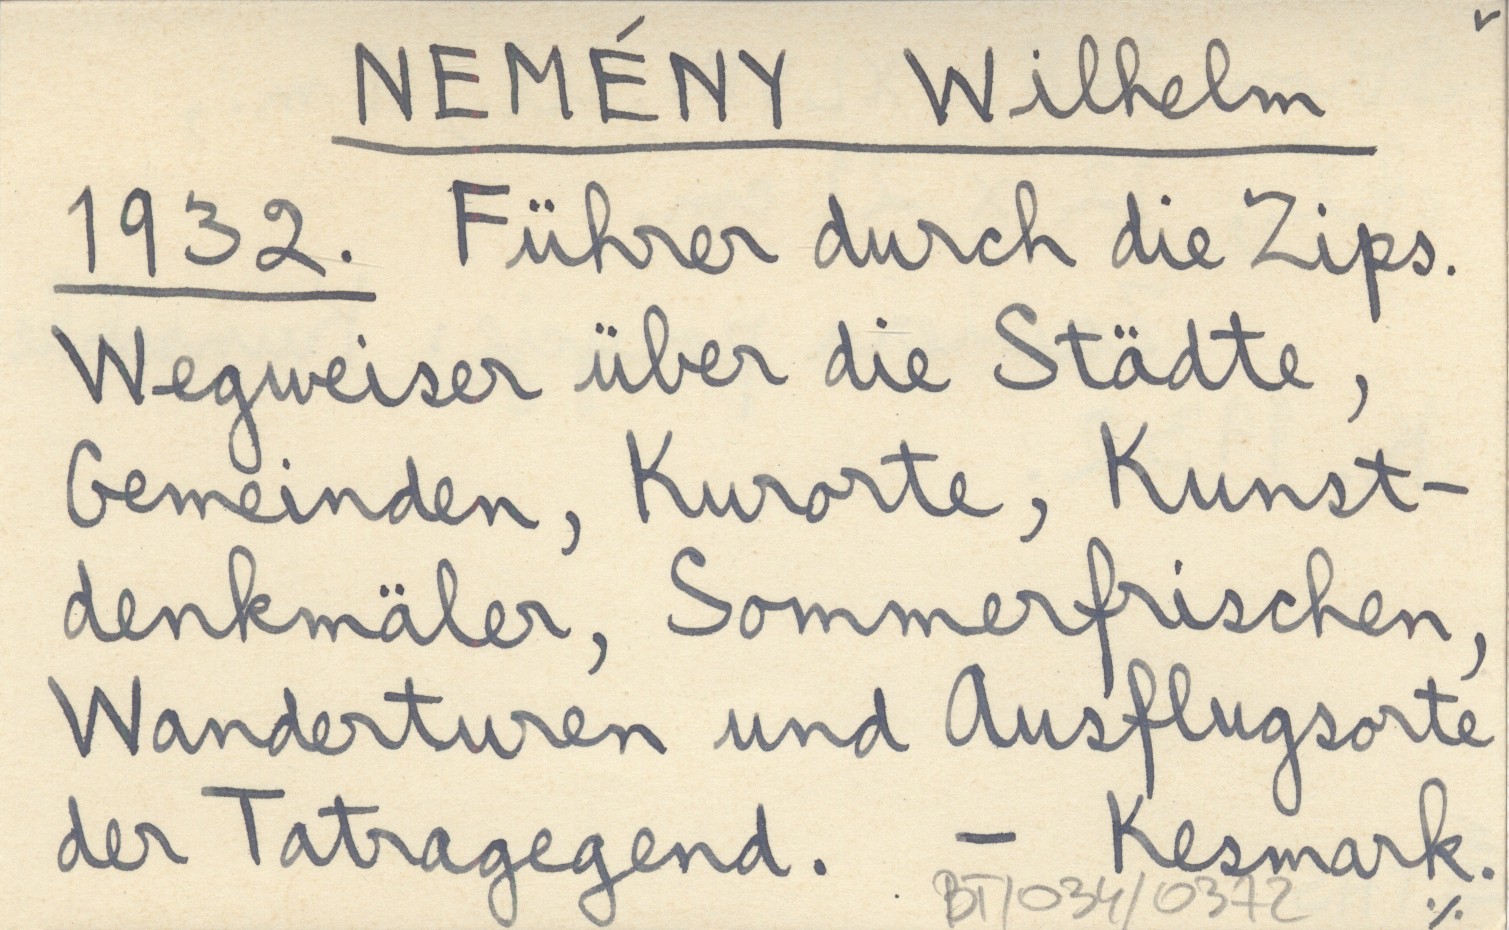 NEMÉNY Wilhelm
1932. Führer durch die Zips.
Wegweiser über die Städte,
Gemeinden, Kurorte, Kunst-
denkmäler, Sommerfrischen,
Wanderturen und Ausflugsorte
der Tatragegend. – Kesmark.
BT/034/0372 ./.